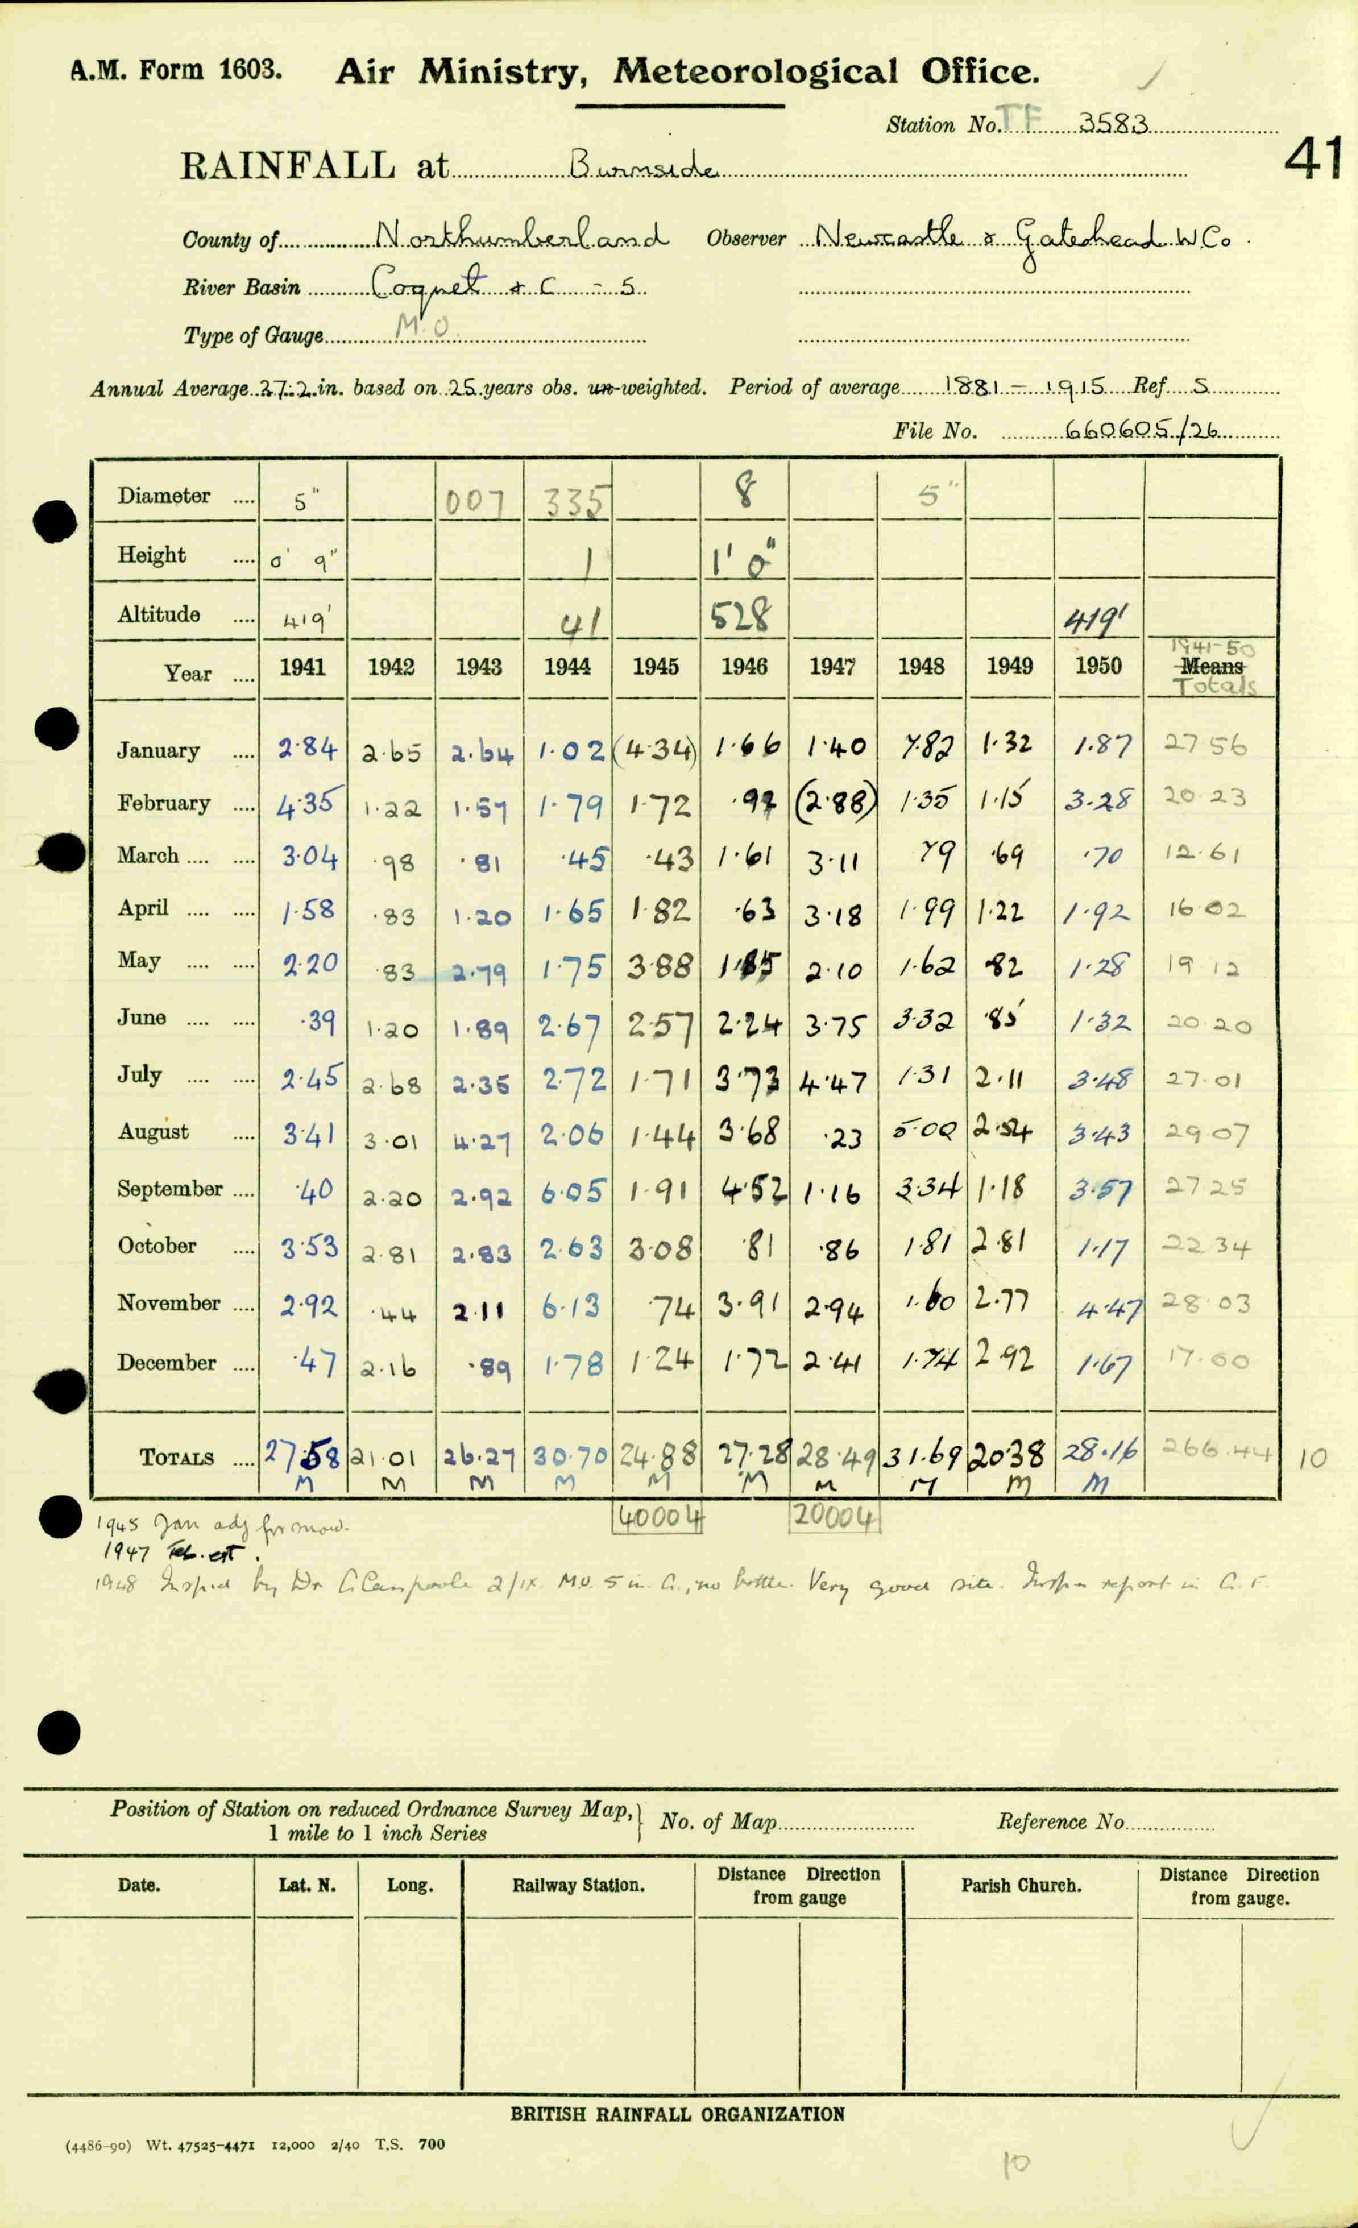 A.M. Form 1603. Air Ministry, Meteorological Office.
Station No. TF 3583
41
RAINFALL at Burnside
County of Northumberland Observer Newcastle & Gateshead W. Co.
River Basin Coquet & C - S
Type of Gauge M.O.
Annual Average 27.2 in. based on 25 years obs. un-weighted. Period of average 1881 - 1915 Ref. S
File No. 660605/26
Diameter .... 5" 007 335 8 5"
Height .... 0' 9" 1 1' 0"
Altitude .... 419' 41 528 419'
Year .... 1941 1942 1943 1944 1945 1946 1947 1948 1949 1950 1941-50 Means Totals
January .... 2.84 2.65 2.64 1.02 (4.34) 1.66 1.40 7.82 1.32 1.87 27 56
February .... 4.35 1.22 1.57 1.79 1.72 .92 (2.88) 1.35 1.15 3.28 20 23
March .... .... 3.04 .98 .81 .45 .43 1.61 3.11 79 .69 .70 12.61
April .... .... 1.58 .83 1.20 1.65 1.82 .63 3.18 1.99 1.22 1.92 16 02
May .... .... 2.20 .83 2.79 1.75 3.88 1.85 2.10 1.62 .82 1.28 19 12
June .... .... .39 1.20 1.89 2.67 2.57 2.24 3.75 3.32 .85 1.32 20 20
July .... .... 2.45 2.68 2.35 2.72 1.71 3.73 4.47 1.31 2.11 3.48 27.01
August .... 3.41 3.01 4.27 2.06 1.44 3.68 .23 5.00 2.54 3.43 29 07
September .... .40 2.20 2.92 6.05 1.91 4.52 1.16 3.34 1.18 3.57 27 25
October .... 3.53 2.81 2.83 2.63 3.08 .81 .86 1.81 2.81 1.17 22 34
November .... 2.92 .44 2.11 6.13 .74 3.91 2.94 1.60 2.77 4.47 28 03
December .... .47 2.16 .89 1.78 1.24 1.72 2.41 1.74 2.92 1.67 17.00
TOTALS .... 27.58 21.01 26.27 30.70 24.88 27.28 28.49 31.69 20.38 28.16 266.44 10
M M M M M M M M M M
40004 20004
1945 Jan adj for snow.
1947 Feb. est.
1948 Inspd by Dr 2/IX. M.O. 5 in. G., no bottle. Very good site. Inspn report in G. F.
Position of Station on reduced Ordnance Survey Map,} No. of Map Reference No.
1 mile to 1 inch Series
Date. Lat. N. Long. Railway Station. Distance Direction from gauge Parish Church. Distance Direction from gauge.
BRITISH RAINFALL ORGANIZATION
(4486-90) Wt. 47525-4471 12,000 2/40 T.S. 700
10